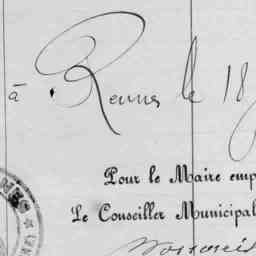 à Rennes le 18
Pour le Maire emp
Le Conseiller Municipal